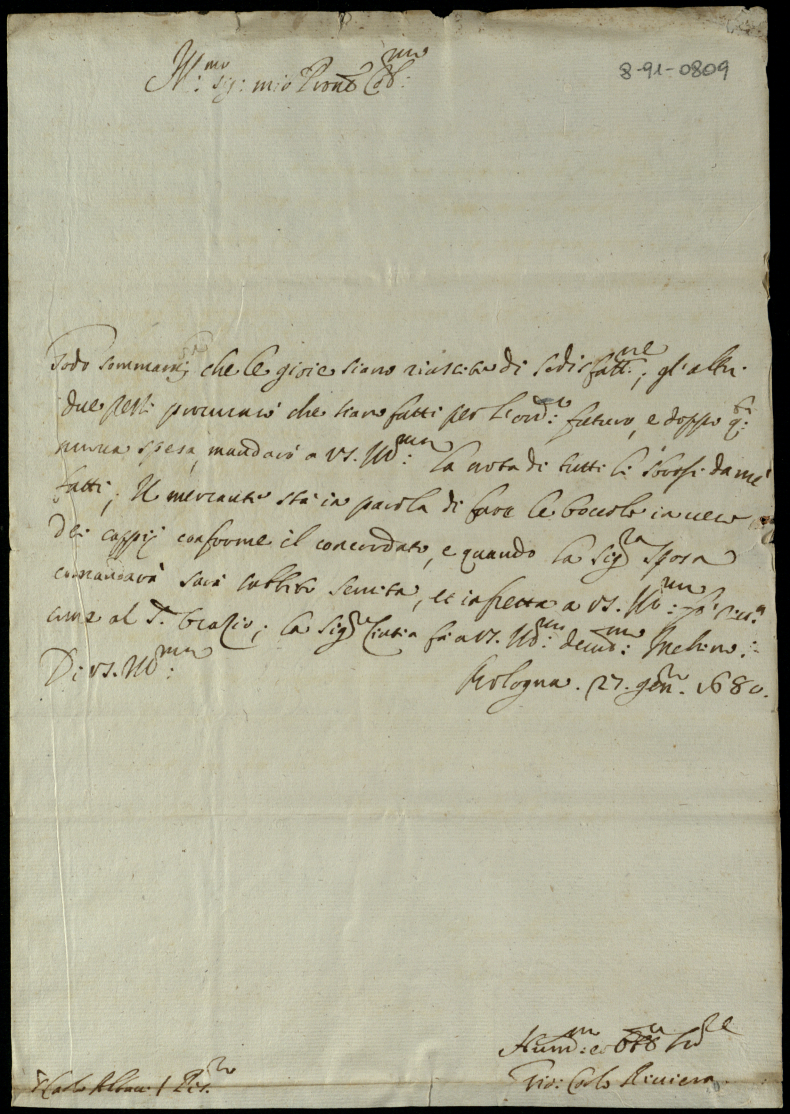 Ill:mo sig: mio Pron Col:mo
8-91-0809
Godo sommam: che le gioie siano riuscite di sodisfatt:ne; gl'altri
due pezzi procurarò che sian fatti per l'ord: futuro, e doppo
spesa, mandarò a VS. Ill:ma la nota di tutti li sborsi da me
fatti; Il mercante stà in parola di fare le boccole in vece
dei cappij conforme il concordato, e quando la Sig:ra Sposa
comandarà sarà subbito servita, et in fretta a VS. Ill:ma
come al S. Orazio; la Sig:ra Cintia fà a VS. Ill:ma
Di VS. Ill:ma
Bologna. 27. gen. 1680.
Hum: et
Gio: Carlo Riviera
Carlo Albani